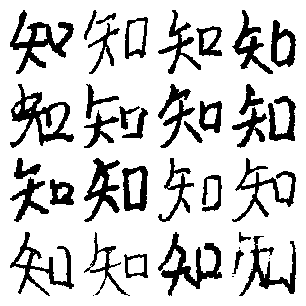 知知知知
知知知知
知知知知
知知知知